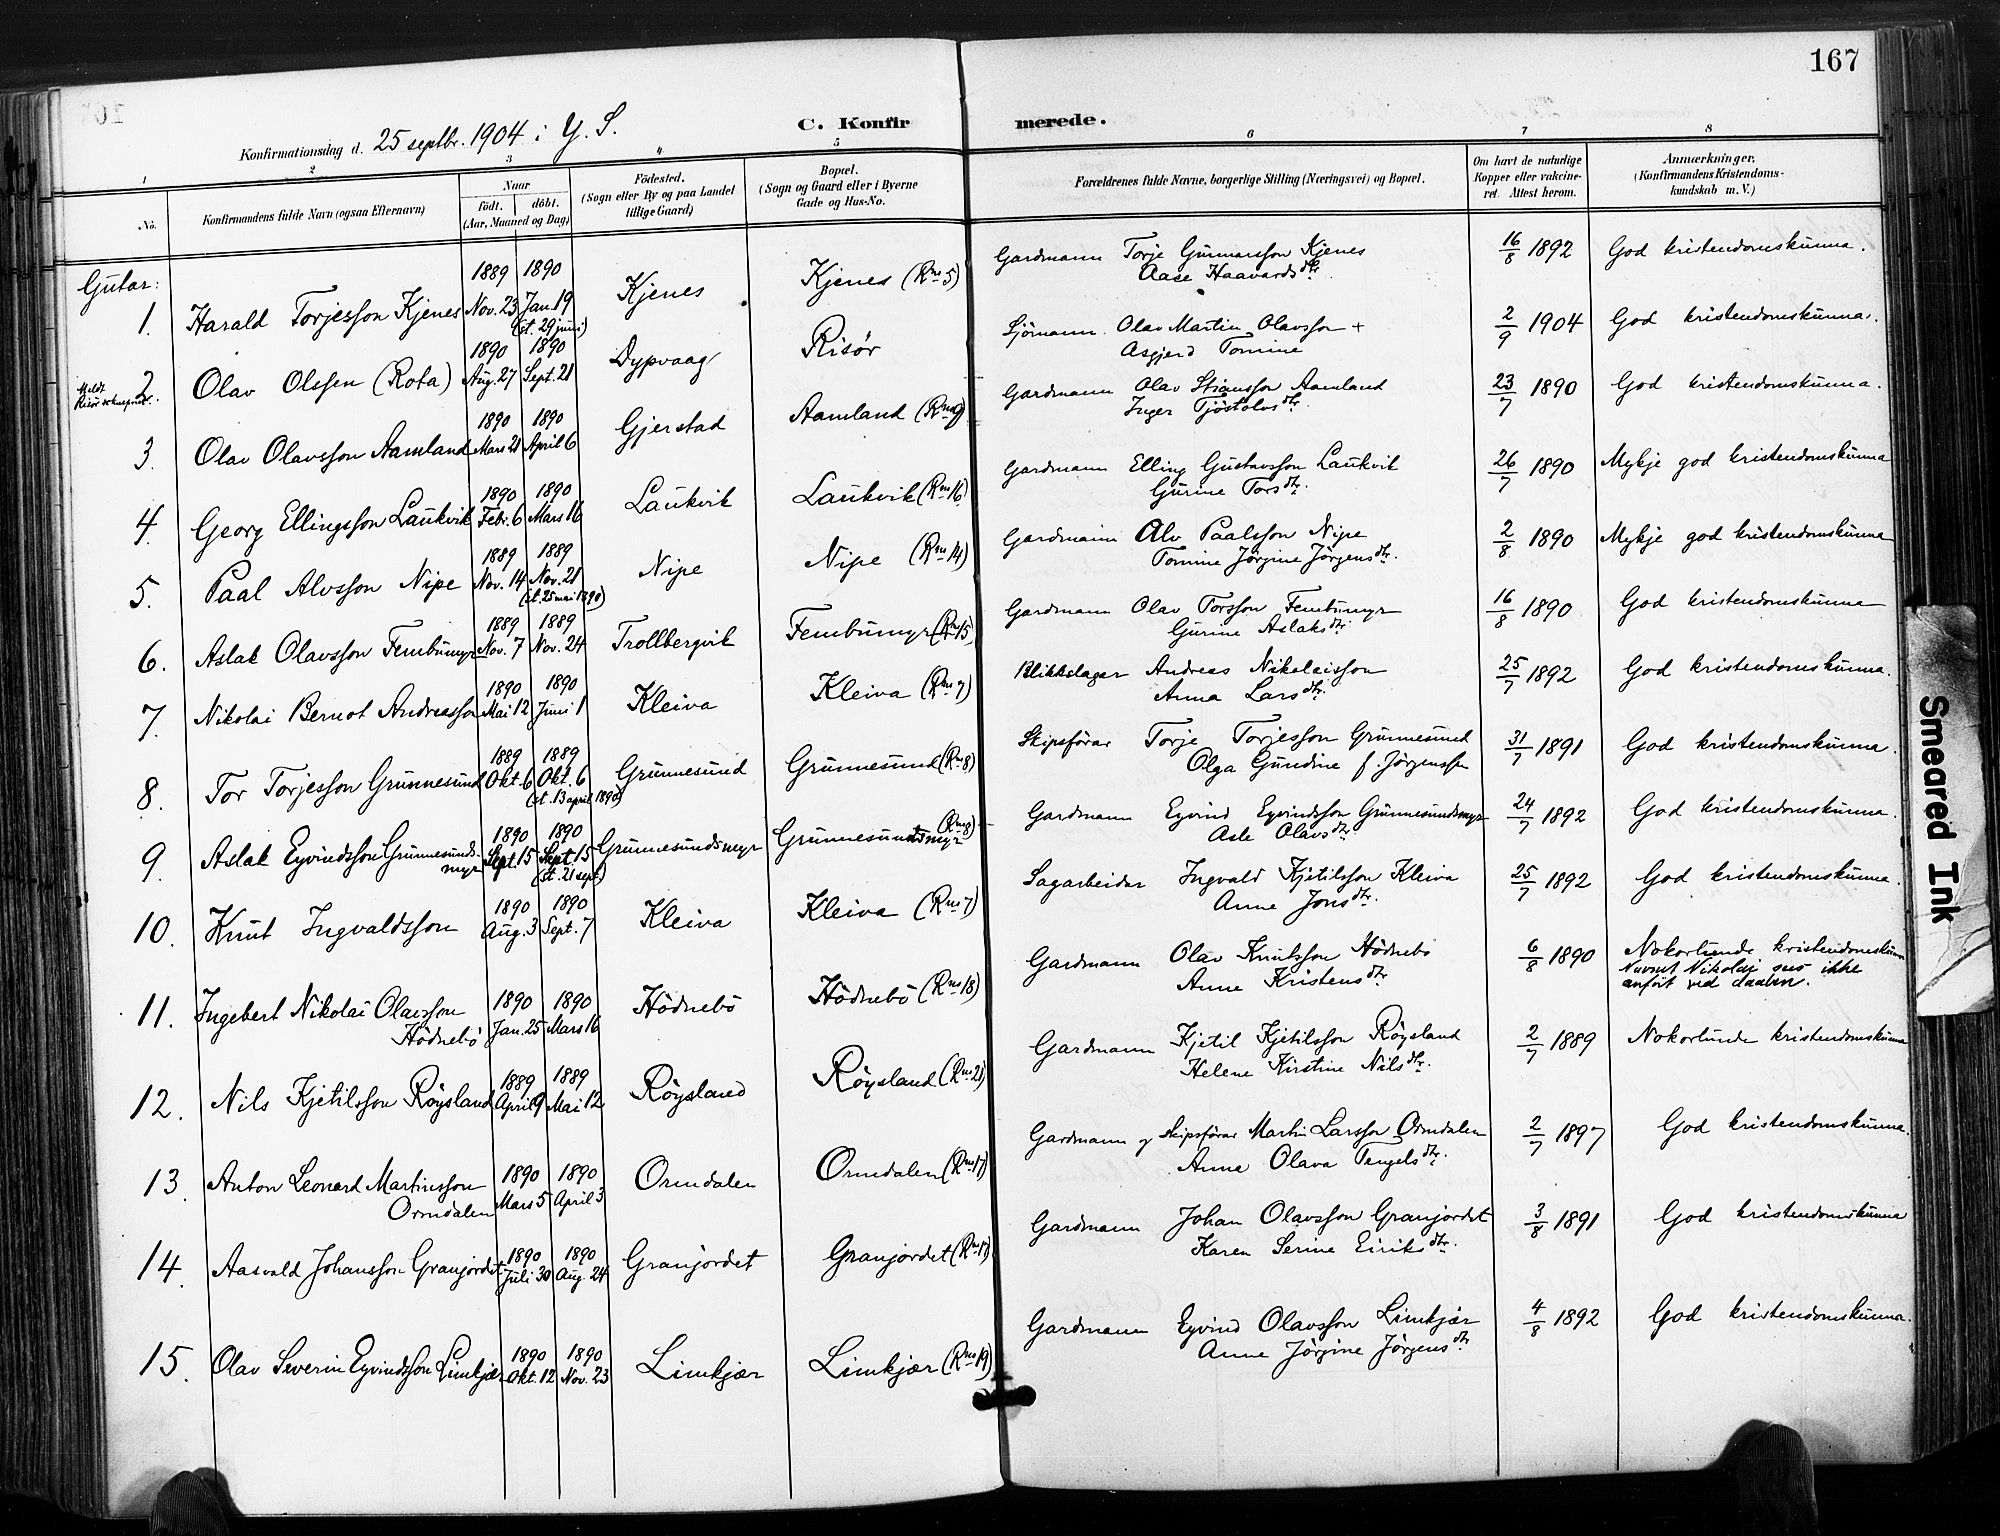 167
Konfirmationsdag d. 25 septbr. 1904 i Y. S.
C. Konfirmerede.
1 2 3 4 5 6 7 8
No.
Konfirmandens fulde Navn (ogsaa Efternavn)
Naar
födt. döbt.
(Aar, Maaned og Dag)
Födested.
(Sogn eller By og paa Landet
tillige Gaard)
Bopæl.
(Sogn og Gaard eller i Byerne
Gade og Hus-No.
Forældrenes fulde Navne, borgerlige Stilling (Næringsvei) og Bopæl.
Om havt de naturlige
Kopper eller vakcine-
ret. Attest herom.
Anmærkninger.
(Konfirmandens Kristendoms-
kundskab m. V.)
Gutar:
1. Harald Torjesson Kjenes 1889 Nov. 23 1890 Jan. 19 (st. 29 juni) Kjenes Kjenes (Rns 5) Gardmann Torje Gunnarsson Kjenes
Aase Haavardsdtr. 16/8 1892 God kristendomskunna.
2. Olav Olssen (Rota) 1890 Aug. 27 1890 Sept. 21 Dypvaag Risör Sjömann Olav Martin Olavsson +
Asgjerd Tomine 2/9 1904 God kristendomskunna.
3. Olav Olavsson Aamland 1890 Mars 21 1890 April 6 Gjerstad Aamland (Rns 9) Gardmann Olav Stiansson Aamland
Inger Tjöstolvsdtr. 23/7 1890 God kristendomskunna.
4. Georg Ellingsson Laukvik 1890 Febr. 6 1890 Mars 16 Laukvik Laukvik (Rns 16) Gardmann Elling Gustavsson Laukvik
Gurine Torsdtr. 26/7 1890 Mykje god kristendomskunna
5. Paal Alvsson Nipe 1889 Nov. 14 1889 Nov. 21 (st. 25 mai 1890) Nipe Nipe (Rns 14) Gardmann Alv Paalsson Nipe
Tomine Jörgine Jörgensdtr. 2/8 1890 Mykje god kristendomskunna
6. Aslak Olavsson Fembumyr 1889 Nov. 7 1889 Nov. 24 Trollbergvik Fembumyr (Rns 15) Gardmann Olav Torsson Fembumyr
Gurine Aslaksdtr. 16/8 1890 God kristendomskunna
7. Nikolai Bernot Andreasson 1890 Mai 12 1890 Juni 1 Kleiva Kleiva (Rns 7) Blikkslager Andreas Nikolaisson
Anna Larsdtr. 25/7 1892 God kristendomskunna.
8. Tor Torjesson Grunnesund 1889 Okt. 6 1889 Okt. 6 (st. 13 april 1890) Grunnesund Grunnesund (Rns 8) Skipsförar Torje Torjesson Grunnesund
Olga Gundine f. Jörgenssen 31/7 1891 God kristendomskunna.
9. Aslak Eyvindsson Grunnesunds-
myr 1890 Sept. 15 1890 Sept. 15 (st. 21 sept.) Grunnesundsmyr Grunnesundsmyr (Rns 8) Gardmann Eyvind Eyvindsson Grunnesundsmyr
Asle Olavsdtr. 24/7 1892 God kristendomskunna.
10. Knut Ingvaldsson 1890 Aug. 3 1890 Sept. 7 Kleiva Kleiva (Rns 7) Sagarbeidar Ingvald Kjetilsson Kleiva
Anne Jonsdtr. 25/7 1892 God kristendomskunna.
11. Ingebert Nikolai Olavsson
Hödnebö 1890 Jan. 25 1890 Mars 16 Hödnebö Hödnebö (Rns 18) Gardmann Olav Knutsson Hödnebö
Anne Kristensdtr. 6/8 1890 Nokorlunde kristendomskunna
Navnet Nikolai sees ikke
anfört ved daaben.
12. Nils Kjetilsson Röysland 1889 April 9 1889 Mai 12 Röysland Röysland (Rns 21) Gardmann Kjetil Kjetilsson Röysland
Helene Kirstine Nilsdtr. 2/7 1889 Nokorlunde kristendomskunna
13. Anton Leonard Martinsson
Ormdalen 1890 Mars 5 1890 April 3 Ormdalen Ormdalen (Rns 17) Gardmann og skipsförar Martin Larsson Ormdalen
Anne Olava Tengelsdtr. 2/7 1897 God kristendomskunna.
14. Aasvald Johansson Granjordet 1890 Juli 30 1890 Aug. 24 Granjordet Granjordet (Rns 17) Gardmann Johan Olavsson Granjordet
Karen Serine Eiriksdtr. 3/8 1891 God kristendomskunna
15. Olav Severin Eyvindsson Limkjær 1890 Okt. 12 1890 Nov. 23 Limkjær Limkjær (Rns 19) Gardmann Eyvind Olavsson Limkjær
Anne Jörgine Jörgensdtr. 4/8 1892 God kristendomskunna.
Smeared Ink